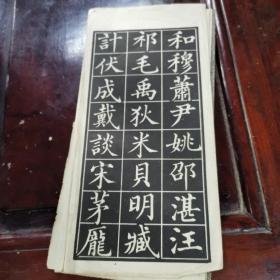 和穆蕭尹姚邵湛汪
祁毛禹狄米貝明臧
計伏成戴談宋茅龐